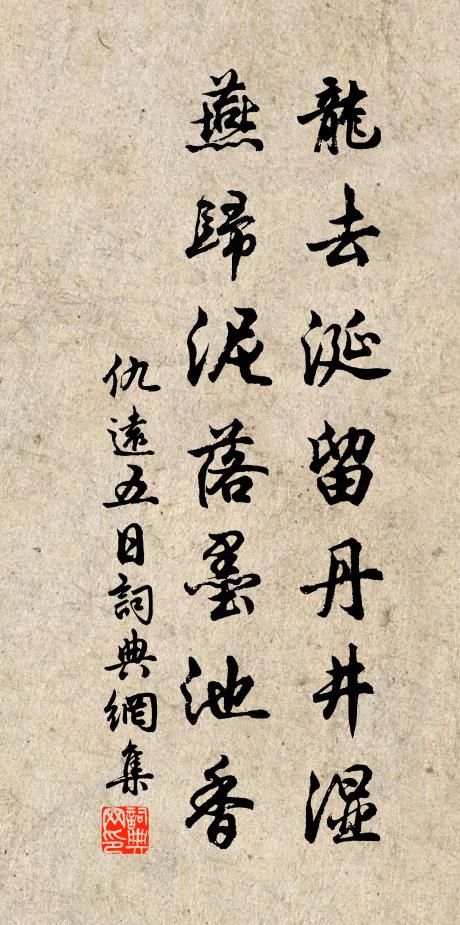 龍去涎留丹井湿
燕歸泥落墨池香
仇遠五日詞典網集
詞典网印